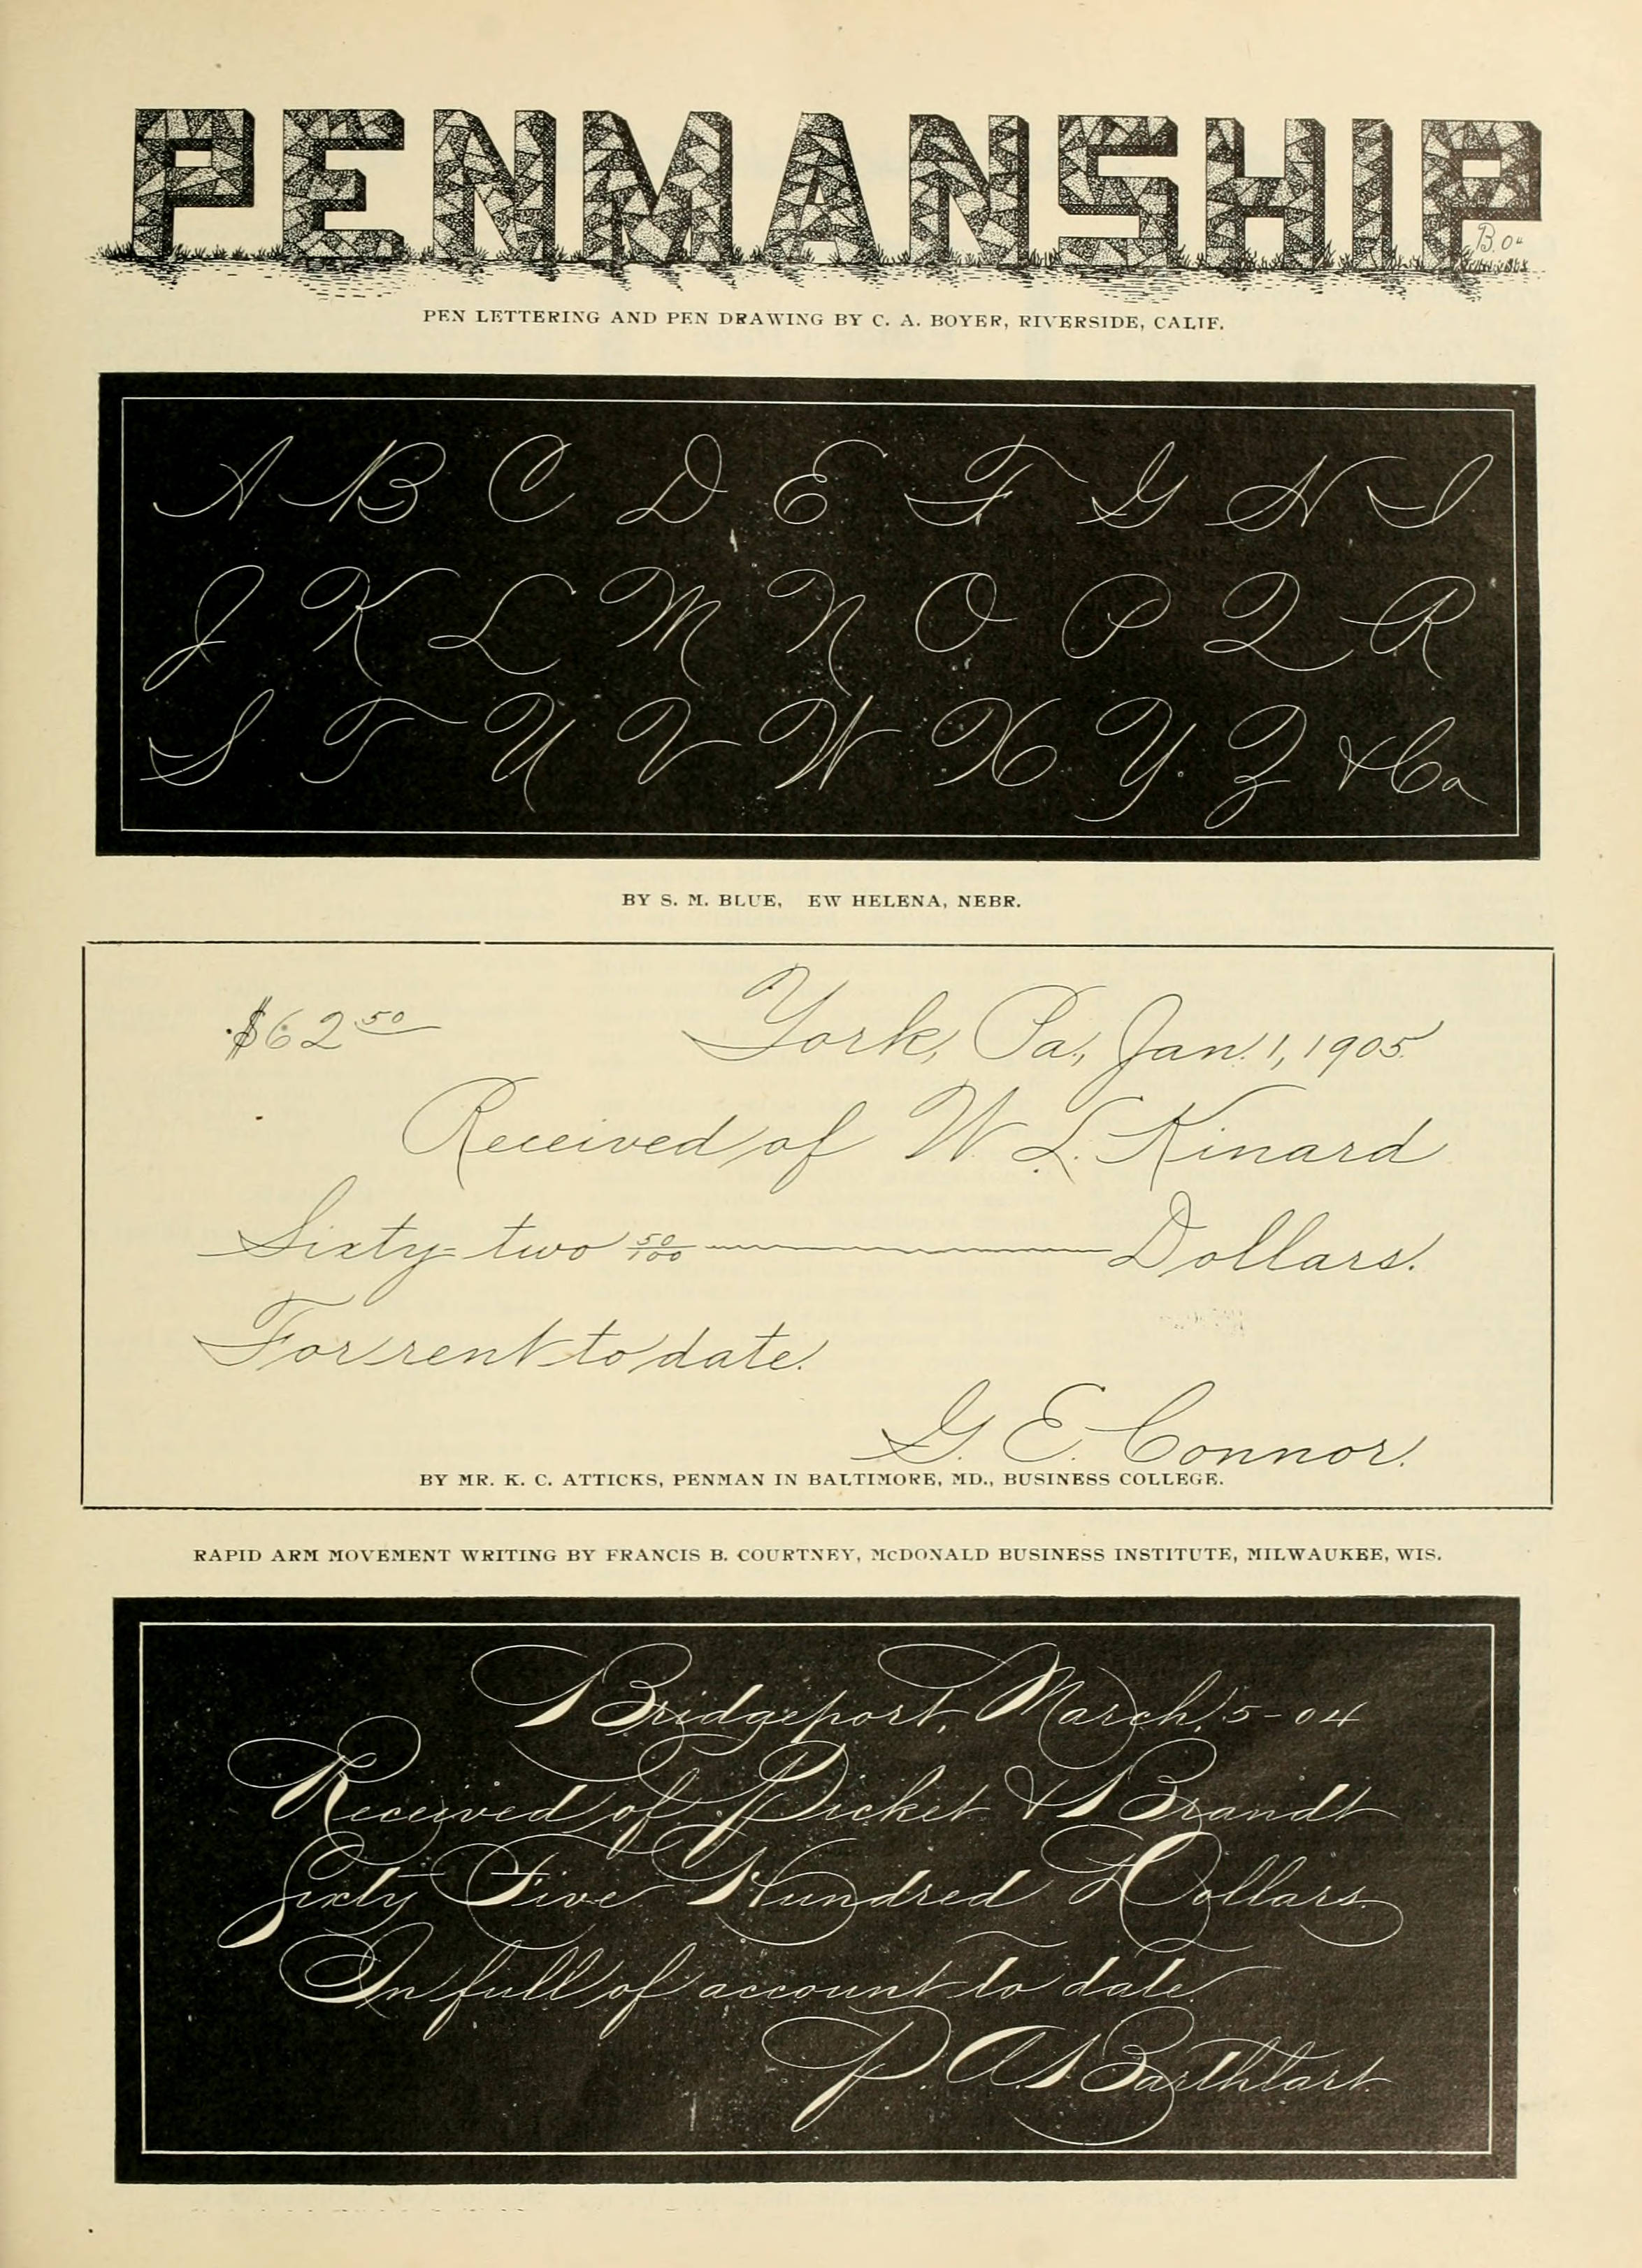 PENMANSHIP
B. 04
PEN LETTERING AND PEN DRAWING BY C. A. BOYER, RIVERSIDE, CALIF.
A B C D E F G H I
J K L M N O P Q R
S T U V W X Y. Z & Co
BY S. M. BLUE, EW HELENA, NEBR.
$62 50 York, Pa., Jan. 1, 1905.
Received of W. L. Kinard
Sixty-two 50/100 Dollars.
For rent to date.
G. E. Connor.
BY MR. K. C. ATTICKS, PENMAN IN BALTIMORE, MD., BUSINESS COLLEGE.
RAPID ARM MOVEMENT WRITING BY FRANCIS B. COURTNEY, MCDONALD BUSINESS INSTITUTE, MILWAUKEE, WIS.
Bridgeport, March, 5-04
Received of Picket & Brandt
Sixty Five Hundred Dollars.
In full of account to date.
P. A. Barthtart.